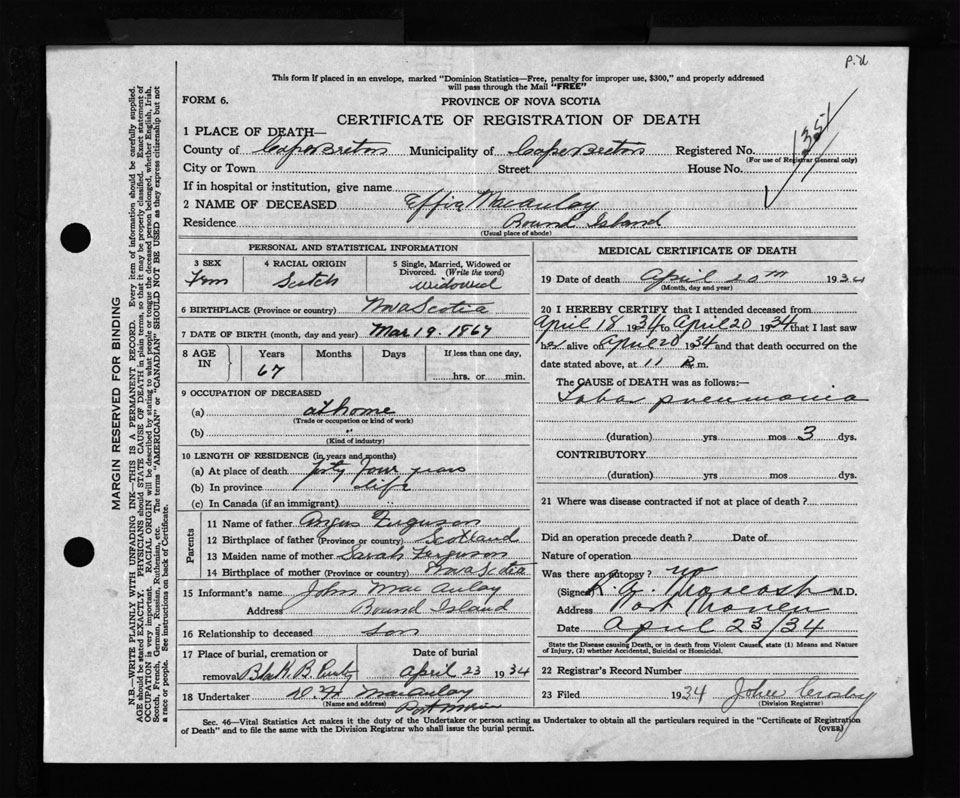 P.d
This form if placed in an envelope, marked "Dominion Statistics—Free, penalty for improper use, $300," and properly addressed
will pass through the Mail "FREE"
FORM 6.
PROVINCE OF NOVA SCOTIA
CERTIFICATE OF REGISTRATION OF DEATH
135
1 PLACE OF DEATH—
County of Cape Breton Municipality of Cape Breton Registered No.
(For use of Registrar General only)
City or Town Street House No.
If in hospital or institution, give name
2 NAME OF DECEASED Effie MacAulay
Residence Round Island
(Usual place of abode)
PERSONAL AND STATISTICAL INFORMATION
3 SEX 4 RACIAL ORIGIN 5 Single, Married, Widowed or
Divorced. (Write the word)
Fem Scotch widowed
6 BIRTHPLACE (Province or country) Nova Scotia
7 DATE OF BIRTH (month, day and year) Mar 19. 1867
8 AGE IN Years Months Days If less than one day,
67 hrs. or min.
9 OCCUPATION OF DECEASED
(a) at home
(Trade or occupation or kind of work)
(b) "
(Kind of industry)
10 LENGTH OF RESIDENCE (in years and months)
(a) At place of death forty four years
(b) In province life
(c) In Canada (if an immigrant)
Parents
11 Name of father Angus Ferguson
12 Birthplace of father (Province or country) Scotland
13 Maiden name of mother Sarah Ferguson
14 Birthplace of mother (Province or country) Nova Scotia
15 Informant's name John MacAulay
Address Round Island
16 Relationship to deceased son
17 Place of burial, cremation or Date of burial
removal Black B. Cemty April 23 1934
18 Undertaker D. MacAulay
(Name and address) Port Morien
MEDICAL CERTIFICATE OF DEATH
19 Date of death April 20th 1934
(Month, day and year)
20 I HEREBY CERTIFY that I attended deceased from
April 18 1934 to April 20 1934 that I last saw
her alive on April 20 1934 and that death occurred on the
date stated above, at 11 m.
The CAUSE OF DEATH was as follows:—
Lobar pneumonia
(duration) yrs mos 3 dys.
CONTRIBUTORY
(duration) yrs mos dys.
21 Where was disease contracted if not at place of death?
Did an operation precede death? Date of
Nature of operation
Was there an autopsy? no
(Signed) M.D.
Address Port Morien
Date April 23/34
State the Disease causing Death, or in death from Violent Causes, state (1) Means and Nature
of Injury, (2) whether Accidental, Suicidal or Homicidal.
22 Registrar's Record Number
23 Filed 1934 John Crosby
(Division Registrar)
Sec. 46—Vital Statistics Act makes it the duty of the Undertaker or person acting as Undertaker to obtain all the particulars required in the "Certificate of Registration
of Death" and to file the same with the Division Registrar who shall issue the burial permit. (OVER)
MARGIN RESERVED FOR BINDING
N.B.—WRITE PLAINLY WITH UNFADING INK—THIS IS A PERMANENT RECORD. Every item of information should be carefully supplied.
AGE should be stated EXACTLY. PHYSICIANS should STATE CAUSE OF DEATH in plain terms, so that it may be properly classified. Exact statement of
OCCUPATION is very important. RACIAL ORIGIN will be described by stating to what people or tongue the deceased person belonged, whether English, Irish,
Scotch, French, German, Russian, Ruthenian, etc. The terms "AMERICAN" or "CANADIAN" SHOULD NOT BE USED as they express citizenship but not
a race or people. See instructions on back of Certificate.